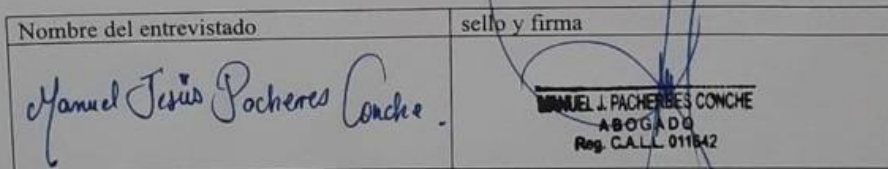 Nombre del entrevistado
sello y firma
Manuel Jesús Pacheres Conche.
MANUEL J. PACHERBES CONCHE
ABOGADO
Reg. C.A.L.L. 011642